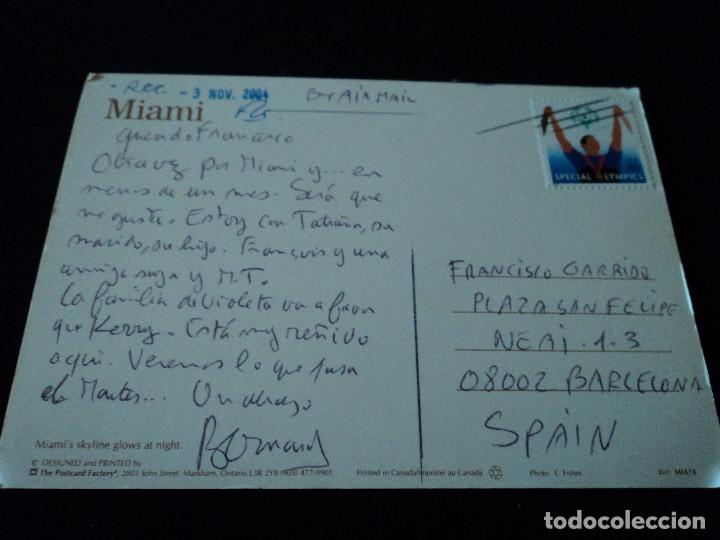 - Rec. - 3 NOV. 2004
BY AIR MAIL
Miami
Querido Francisco
Otra vez por Miami y... en
menos de un mes. Será que
me gusta. Estoy con Tatiana, su
marido, su hijo. François y una
amiga suya y M.T.
La familia de Violeta va a favor
que Kerry. Está muy reñido
aquí. Veremos lo que pasa
el Martes... Un abrazo
Bernard
SPECIAL OLYMPICS
FRANCISCO GARRIDO
PLAZA SAN FELIPE
NERI. 1. 3
08002 BARCELONA
SPAIN
Miami's skyline glows at night.
© DESIGNED and PRINTED by
The Postcard Factory®, 2801 John Street, Markham, Ontario L3R 2Y8 (905) 477-9901
Printed in Canada/Imprimé au Canada
Photo: L. Fisher
Ref: MIA78
todocoleccion
todocoleccion.net